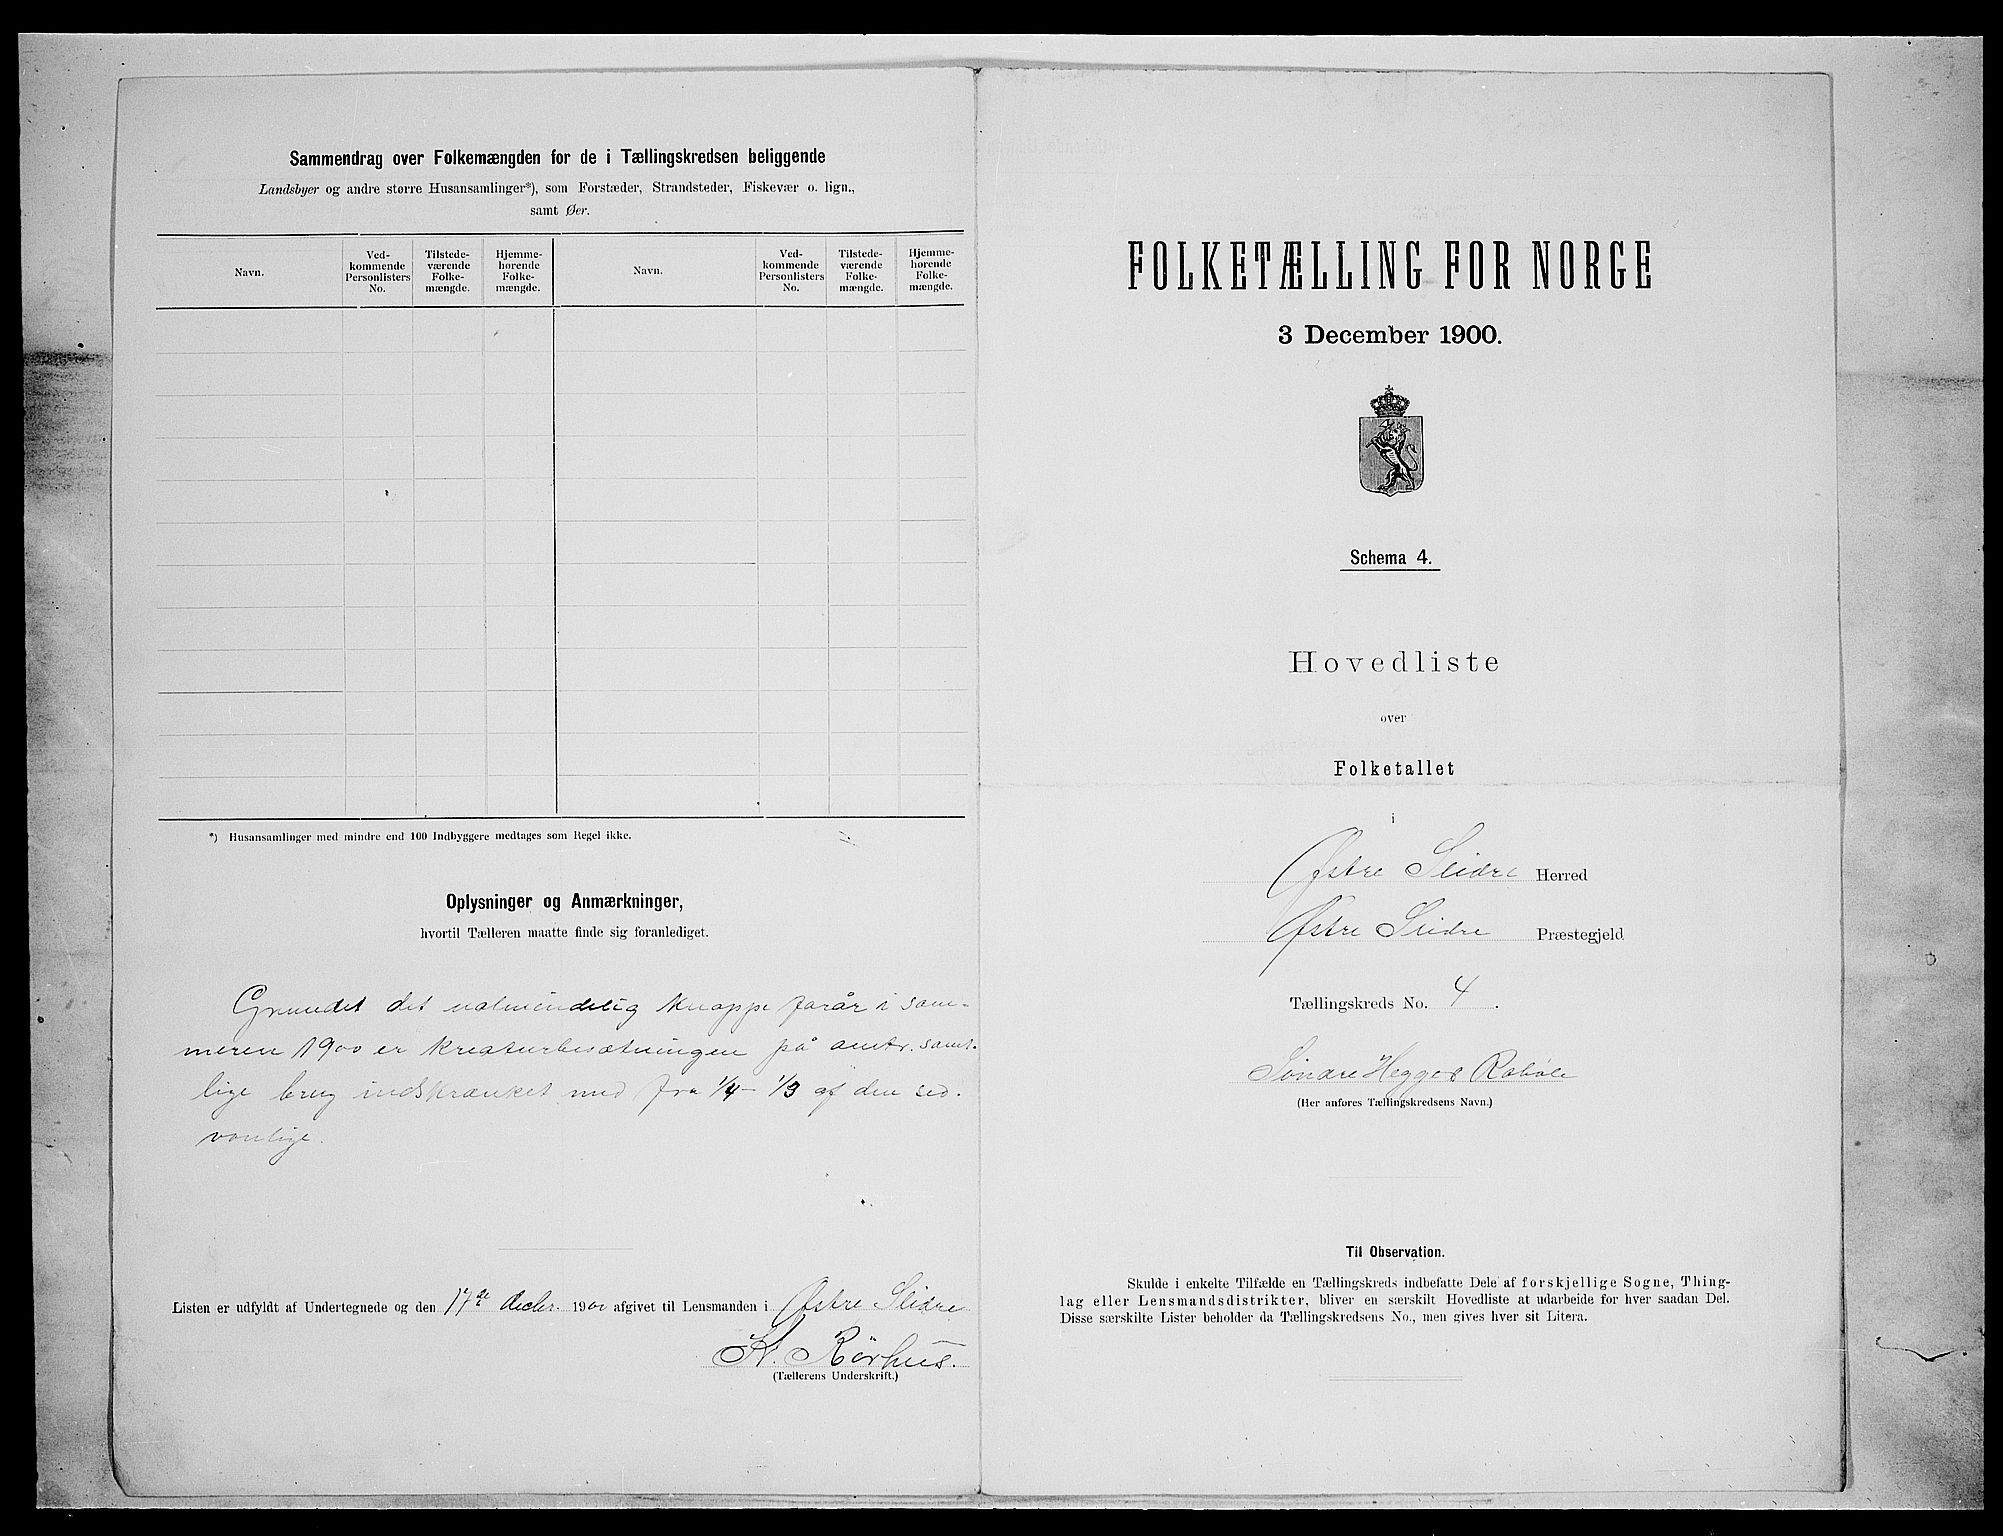 Sammendrag over Folkemængden for de i Tællingskredsen beliggende
Landsbyer og andre større Husansamlinger*), som Forstæder, Strandsteder, Fiskevær o. lign.,
samt Øer.
Navn.
Ved-
kommende
Personlisters
No.
Tilstede-
værende
Folke-
mængde.
Hjemme-
hørende
Folke-
mængde.
Navn.
Ved-
kommende
Personlisters
No.
Tilstede-
værende
Folke-
mængde.
Hjemme-
hørende
Folke-
mængde.
*) Husansamlinger med mindre end 100 Indbyggere medtages som Regel ikke.
Oplysninger og Anmærkninger,
hvortil Tælleren maatte finde sig foranlediget.
Grundet det ualmindelig knappe forår i som-
meren 1900 er kreaturbesætningen på omtr. samt-
lige brug indskrænket med fra 1/4 - 1/3 af den sed-
vanlige.
Listen er udfyldt af Undertegnede og den 17de decbr. 1900 afgivet til Lensmanden i Østre Slidre
K. Rørhus.
(Tællerens Underskrift.)
FOLKETÆLLING FOR NORGE
3 December 1900.
Schema 4.
Hovedliste
over
Folketallet
i
Østre Slidre Herred
Østre Slidre Præstegjeld
Tællingskreds No. 4.
Søndre Hegge Rabøle
(Her anføres Tællingskredsens Navn.)
Til Observation.
Skulde i enkelte Tilfælde en Tællingskreds indbefatte Dele af forskjellige Sogne, Thing-
lag eller Lensmandsdistrikter, bliver en særskilt Hovedliste at udarbeide for hver saadan Del.
Disse særskilte Lister beholder da Tællingskredsens No., men gives hver sit Litera.